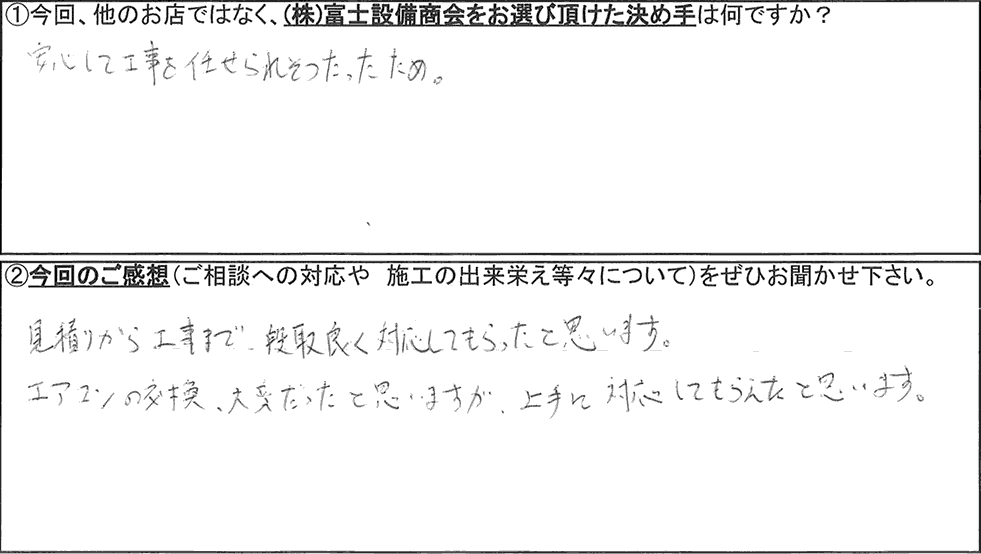 ①今回、他のお店ではなく、(株)富士設備商会をお選び頂けた決め手は何ですか？
安心して工事を任せられそうだったため。
②今回のご感想(ご相談への対応や 施工の出来栄え等々について)をぜひお聞かせ下さい。
見積りから工事まで、段取良く対応してもらったと思います。
エアコンの交換、大変だったと思いますが、上手に対応してもらえたと思います。